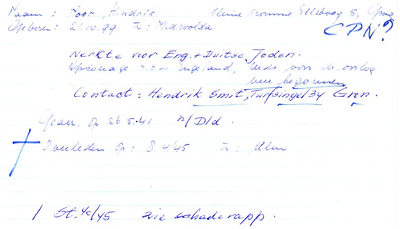 Naam : Hendrik Kleine Kromme Elleboog 5, Gron
Geboren : 21.10.99 te : Midwolda CPN?
Werkte voor Eng. + Duitse Joden.
Spionage v.o.v. Engeland, reeds voor de oorlog
mee begonnen
Contact : Hendrik Smit, Turfsingel 34 Gron.
Gearr. op 26.5.41 n/Dld.
Overleden op : 8.4.45 te : Ulm
St. 40/45 zie schaderapp.